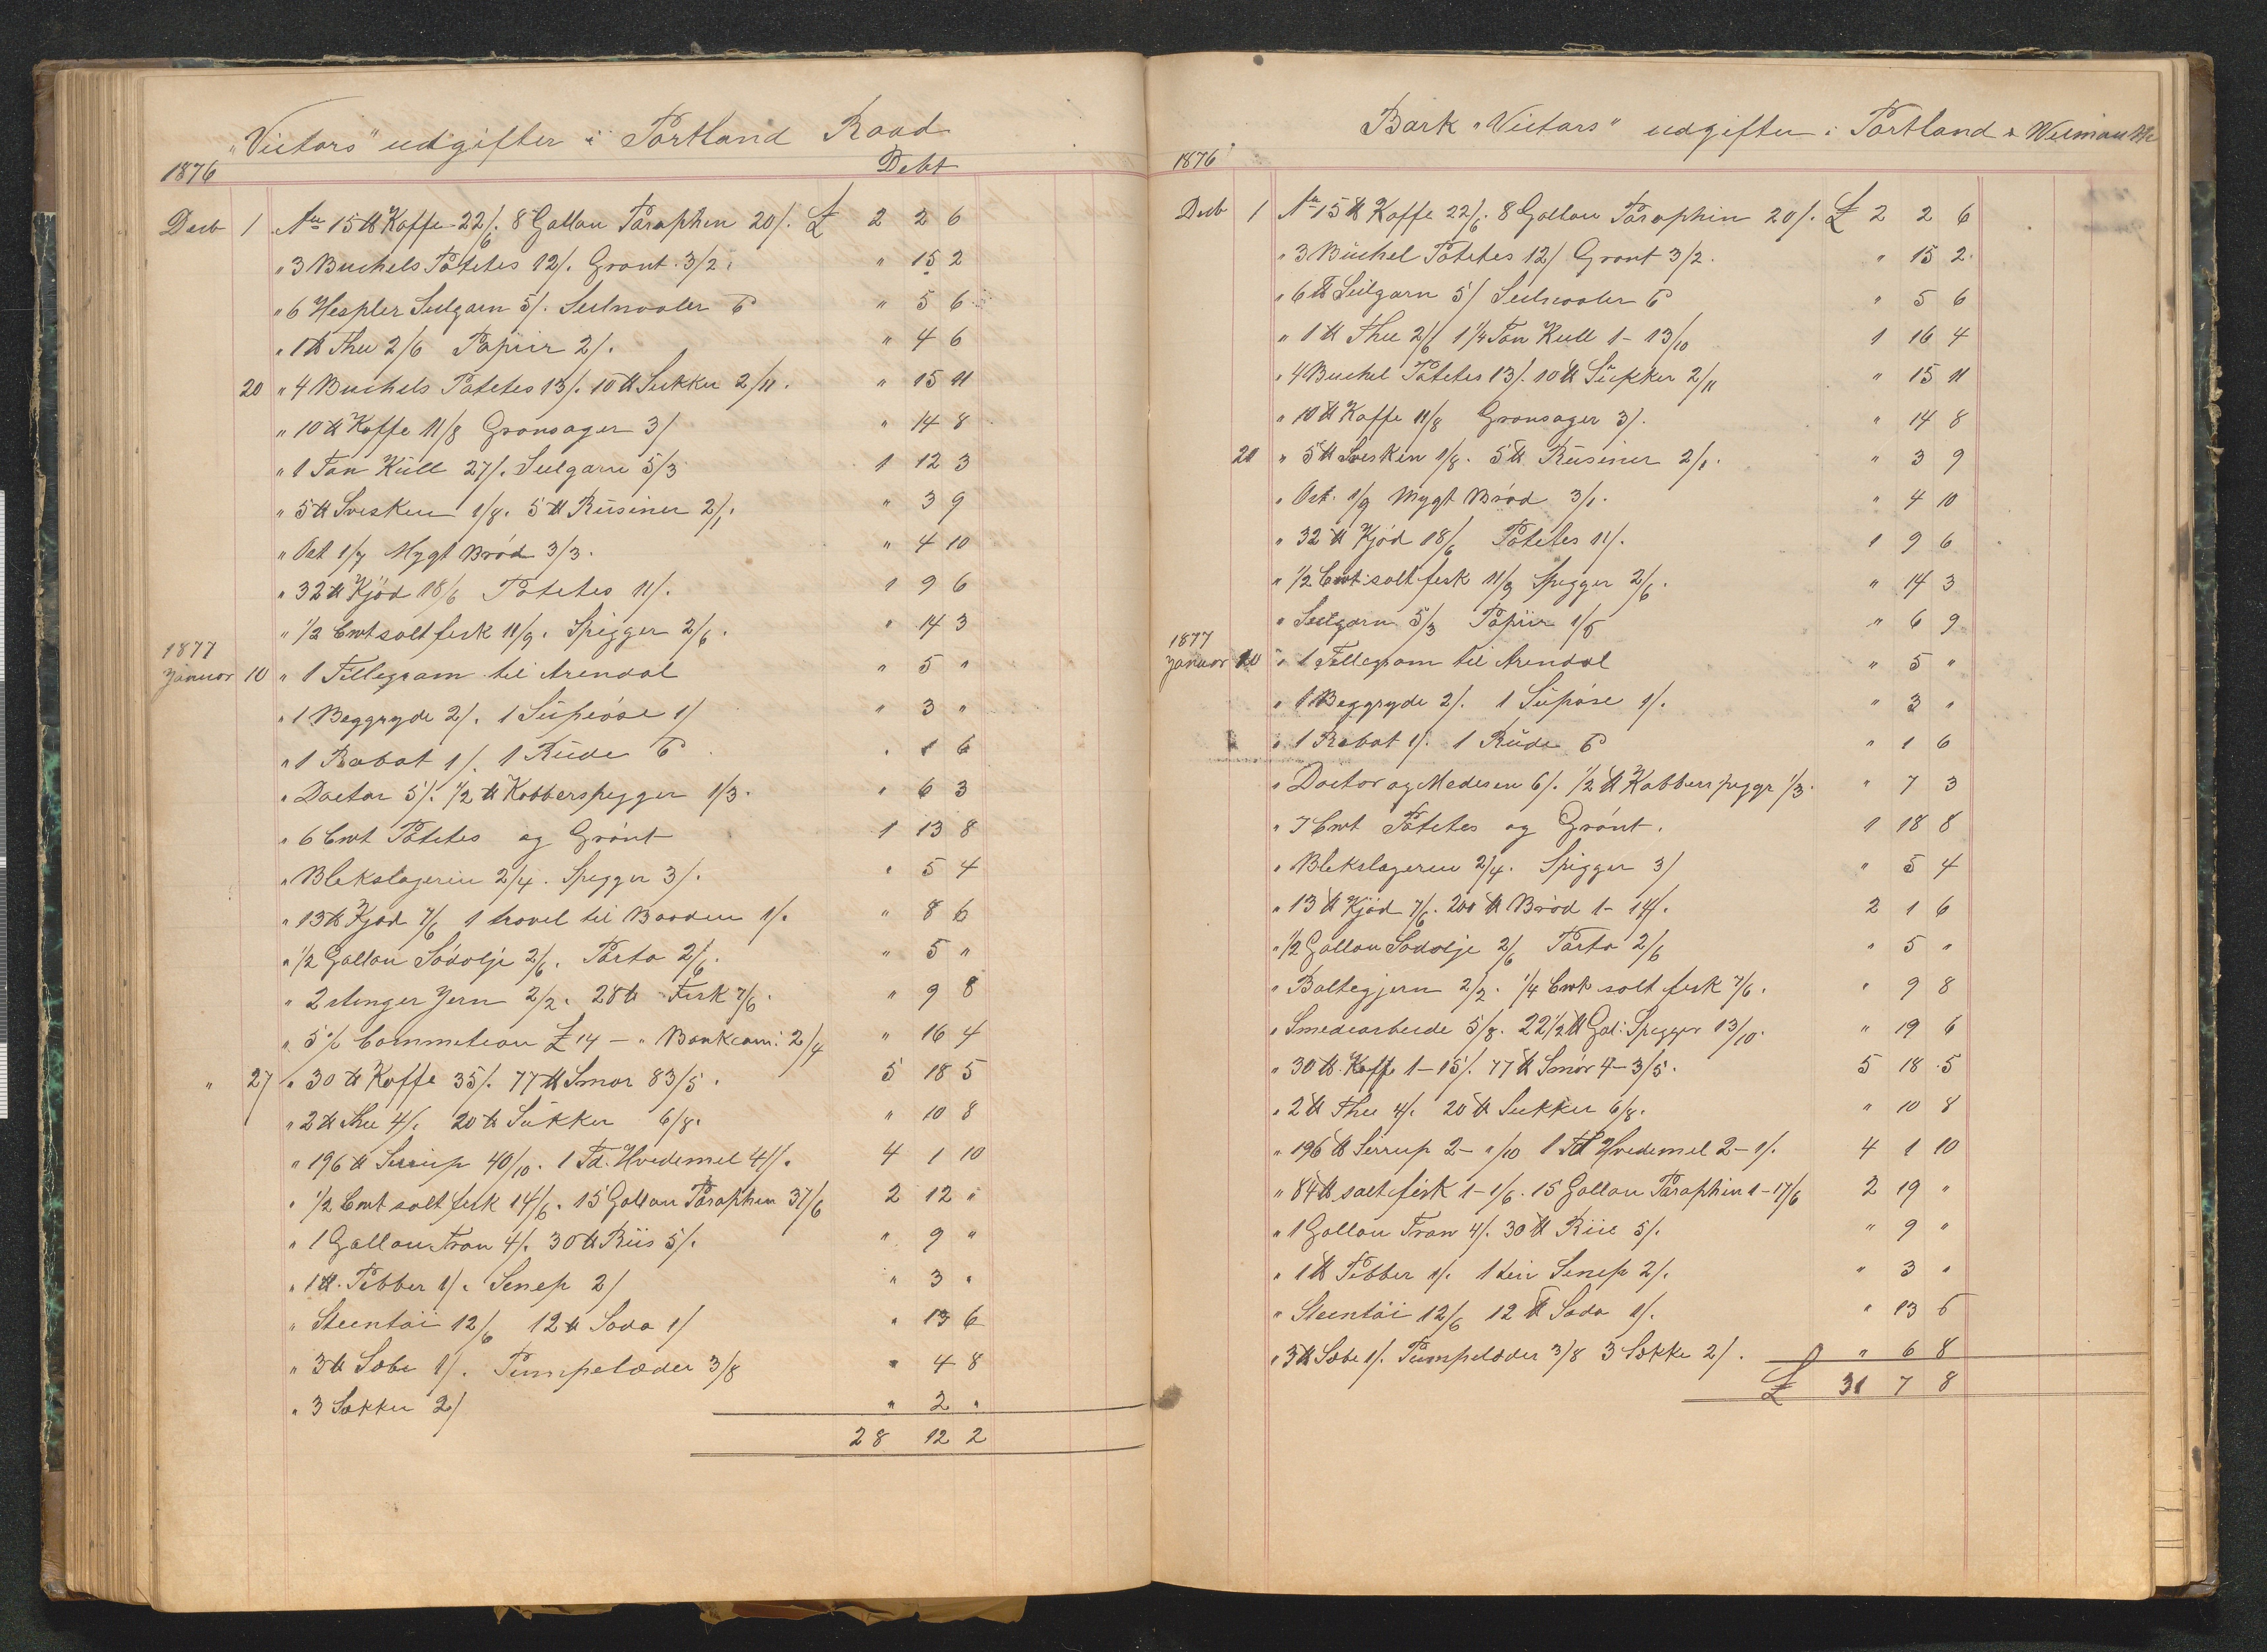 "Victors" udgifter i Portland Road
1876 Debt
Decb 1 An 15 ℔ Kaffe 22/6. 8 Gallon Paraphin 20/. £ 2 2 6
" 3 Buchels Potetes 12/. Grønt 3/2. " 15 2
" 6 Hespler Seilgarn 5/. Seilnaaler 6 " 5 6
" 1 ℔ Thee 2/6 Papiir 2/. " 4 6
20 " 4 Buchels Potetes 13/. 10 ℔ Sukker 2/11. " 15 11
" 10 ℔ Kaffe 11/8 Grønsager 3/ " 14 8
" 1 Ton Kull 27/. Seilgarn 5/3 1 12 3
" 5 ℔ Svesker 1/8. 5 ℔ Rusiner 2/1. " 3 9
" Ost 1/7 Mygt Brød 3/3. " 4 10
" 32 ℔ Kjød 18/6 Potetes 11/. 1 9 6
" 1/2 Cwt salt fisk 11/9. Spigger 2/6. " 14 3
1877
Januar 10 " 1 Tellegram til Arendal " 5 "
" 1 Beggryde 2/. 1 Supeøse 1/ " 3 "
" 1 Rabat 1/. 1 Rude 6 " 1 6
" Doctor 5/. 1/2 ℔ Kobberspigger 1/3. " 6 3
" 6 Cwt Potetes og Grønt 1 13 8
" Blekslageriee 2/4. Spigger 3/. " 5 4
" 13 ℔ Kjød 7/6 1 travel til Baaden 1/. " 8 6
" 1/2 Gallon Sødolje 2/6. Porto 2/6. " 5 "
" 2 stenger Jern 2/2. 28 ℔ Fisk 7/6. " 9 8
" 5 % Commetion £ 14 — " Bankcom: 2/4 " 16 4
" 27 " 30 ℔ Kaffe 35/. 77 ℔ Smør 83/5. 5 18 5
" 2 ℔ Thee 4/. 20 ℔ Sukker 6/8. " 10 8
" 196 ℔ Sirrup 40/10. 1 Td. Hvedemel 41/. 4 1 10
" 1/2 Cwt salt fisk 14/6. 15 Gallon Paraphin 37/6 2 12 "
" 1 Gallon Tran 4/. 30 ℔ Riis 5/. " 9 "
" 1 ℔. Pebber 1/. Senep 2/ " 3 "
" Steentøi 12/6 12 ℔ Soda 1/ " 13 6
" 3 ℔ Sæbe 1/. Pumpelæder 3/8 " 4 8
" 3 Sækker 2/ " 2 "
28 12 2
Bark "Victors" udgifter i Portland & Weimauth
1876
Decb 1 An 15 ℔ Kaffe 22/6. 8 Gallon Paraphin 20/. £ 2 2 6
" 3 Buchel Potetes 12/ Grønt 3/2. " 15 2
" 6 ℔ Seilgarn 5/ Seilnaaler 6 " 5 6
" 1 ℔ Thee 2/6 1 1/4 Ton Kull 1 - 13/10 1 16 4
" 4 Buchel Potetes 13/. 10 ℔ Sukker 2/11 " 15 11
" 10 ℔ Kaffe 11/8 Grønsager 3/. " 14 8
20 " 5 ℔ Svesken 1/8. 5 ℔ Rusiner 2/1. " 3 9
" Ost. 1/9 Mygt Brød 3/1. " 4 10
" 32 ℔ Kjød 18/6 Potetes 11/. 1 9 6
" 1/2 Cwt: salt fisk 11/9 Spigger 2/6. " 14 3
" Seilgarn 5/3 Papiir 1/6 " 6 9
1877
Januar 10 " 1 Tellegram til Arendal " 5 "
" 1 Beggryde 2/. 1 Supøse 1/. " 3 "
" 1 Rabat 1/. 1 Rude 6 " 1 6
" Doctor og Medesen 6/. 1/2 ℔ Kobberspiggr 1/3. " 7 3
" 7 Cwt Potetes og Grønt. 1 18 8
" Blekslageriee 2/4. Spigger 3/ " 5 4
" 13 ℔ Kjød 7/6. 200 ℔ Brød 1 - 14/. 2 1 6
" 1/2 Gallon Sødolje 2/6 Porto 2/6 " 5 "
" Boltegjern 2/2. 1/4 Cwt salt fisk 7/6. " 9 8
" Smedearbeide 5/8. 22 1/2 ℔ Gal: Spigger 13/10. " 19 6
" 30 ℔. Kaffe 1 - 15/. 77 ℔ Smør 4 - 3/5. 5 18 5
" 2 ℔ Thee 4/. 20 ℔ Sukker 6/8. " 10 8
" 196 ℔ Sirrup 2 - "/10 1 Td Hvedemel 2 - 1/. 4 1 10
" 84 ℔ salt fisk 1 - 1/6. 15 Gallon Paraphin 1 - 17/6 2 19 "
" 1 Gallon Tran 4/. 30 ℔ Riis 5/. " 9 "
" 1 ℔ Pebber 1/. 1 tin Senep 2/. " 3 "
" Steentøi 12/6 12 ℔ Soda 1/. " 13 6
" 3 ℔ Sæbe 1/. Pumpelæder 3/8 3 Sekke 2/. " 6 8
£ 31 7 8